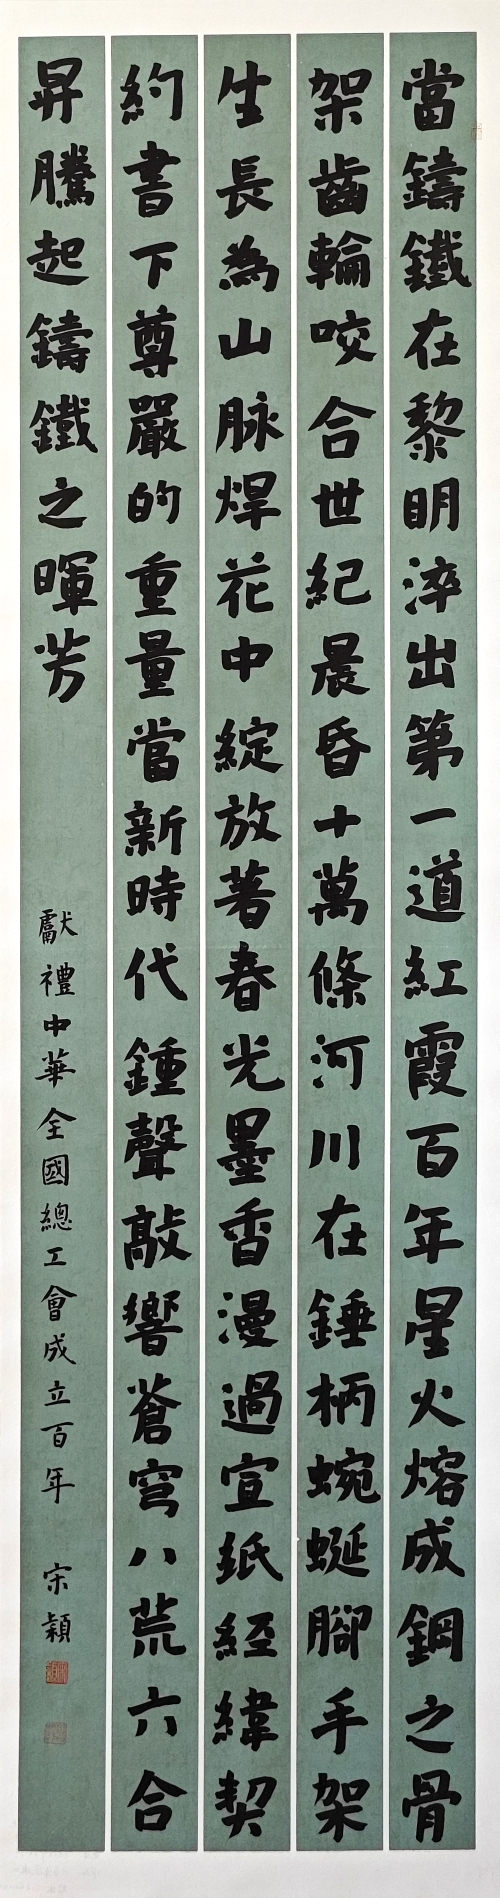 當鑄鐵在黎明淬出第一道紅霞百年星火熔成鋼之骨
架齒輪咬合世紀晨昏十萬條河川在錘柄蜿蜒腳手架
生長為山脉焊花中綻放著春光墨香漫過宣紙經緯契
約書下尊嚴的重量當新時代鍾聲敲響蒼穹八荒六合
昇騰起鑄鐵之暉芳
獻禮中華全國總工會成立百年 宋穎